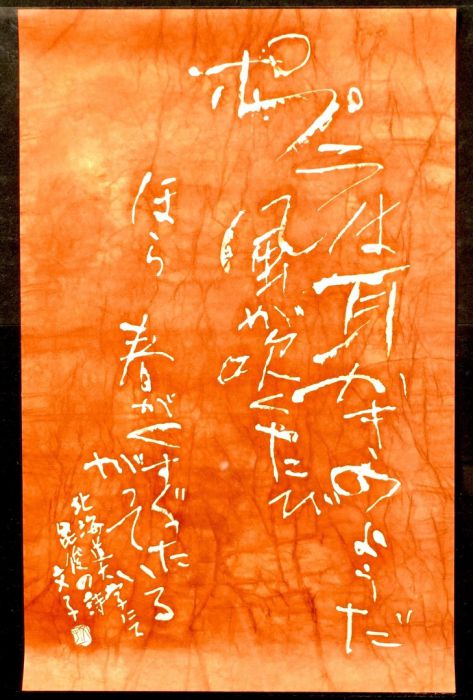 ポプラは耳かきのようだ
風が吹くたび
ほら 春がくすぐった
がっている
北海道大学にて
の詩
文子